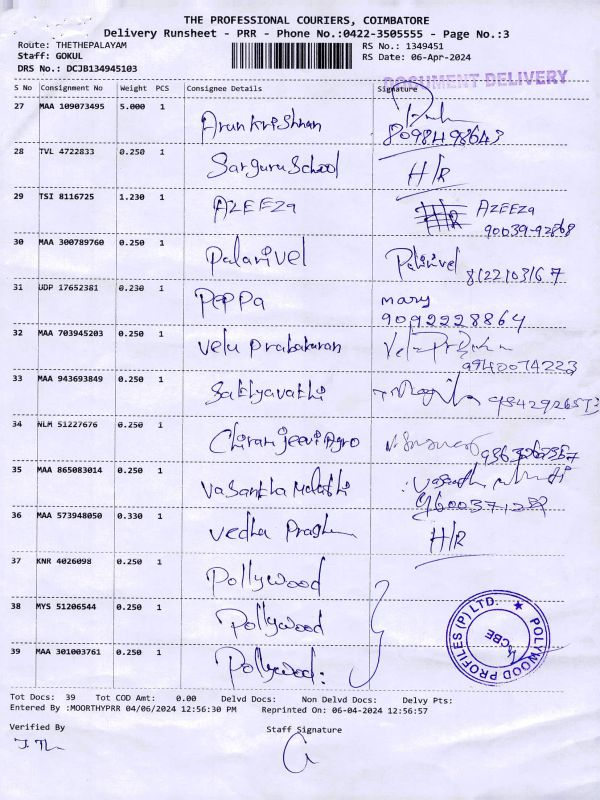 THE PROFESSIONAL COURIERS, COIMBATORE
Delivery Runsheet - PRR - Phone No.:0422-3505555 - Page No.:3
Route: THETHEPALAYAM RS No.: 1349451
Staff: GOKUL RS Date: 06-Apr-2024
DRS No.: DCJB134945103
DOCUMENT DELIVERY
S No Consignment No Weight PCS Consignee Details Signature
27 MAA 109073495 5.000 1 Arunkrishnan 8098498643
28 TVL 4722833 0.250 1 Sarguru School H/R
29 TSI 8116725 1.230 1 AZEEZa AZEEZa
90039-92868
30 MAA 300789760 0.250 1 Palanivel Palanivel 8122103167
31 UDP 17652381 0.230 1 PePPa mary
9092228864
32 MAA 703945203 0.250 1 Velu Prabakaran
9940074223
33 MAA 943693849 0.250 1 Sathyavathi
34 NLM 51227676 0.250 1 Chiranjeevi Agro
35 MAA 865083014 0.250 1 Vasantha Malathi
36 MAA 573948050 0.330 1 Vedha H/R
37 KNR 4026098 0.250 1 Pollywood
38 MYS 51206544 0.250 1 Pollywood
39 MAA 301003761 0.250 1 Pollywood:
POLYWOOD PROFILES (P) LTD. ★
CBE
Tot Docs: 39 Tot COD Amt: 0.00 Delvd Docs: Non Delvd Docs: Delvy Pts:
Entered By :MOORTHYPRR 04/06/2024 12:56:30 PM Reprinted On: 06-04-2024 12:56:57
Verified By Staff Signature